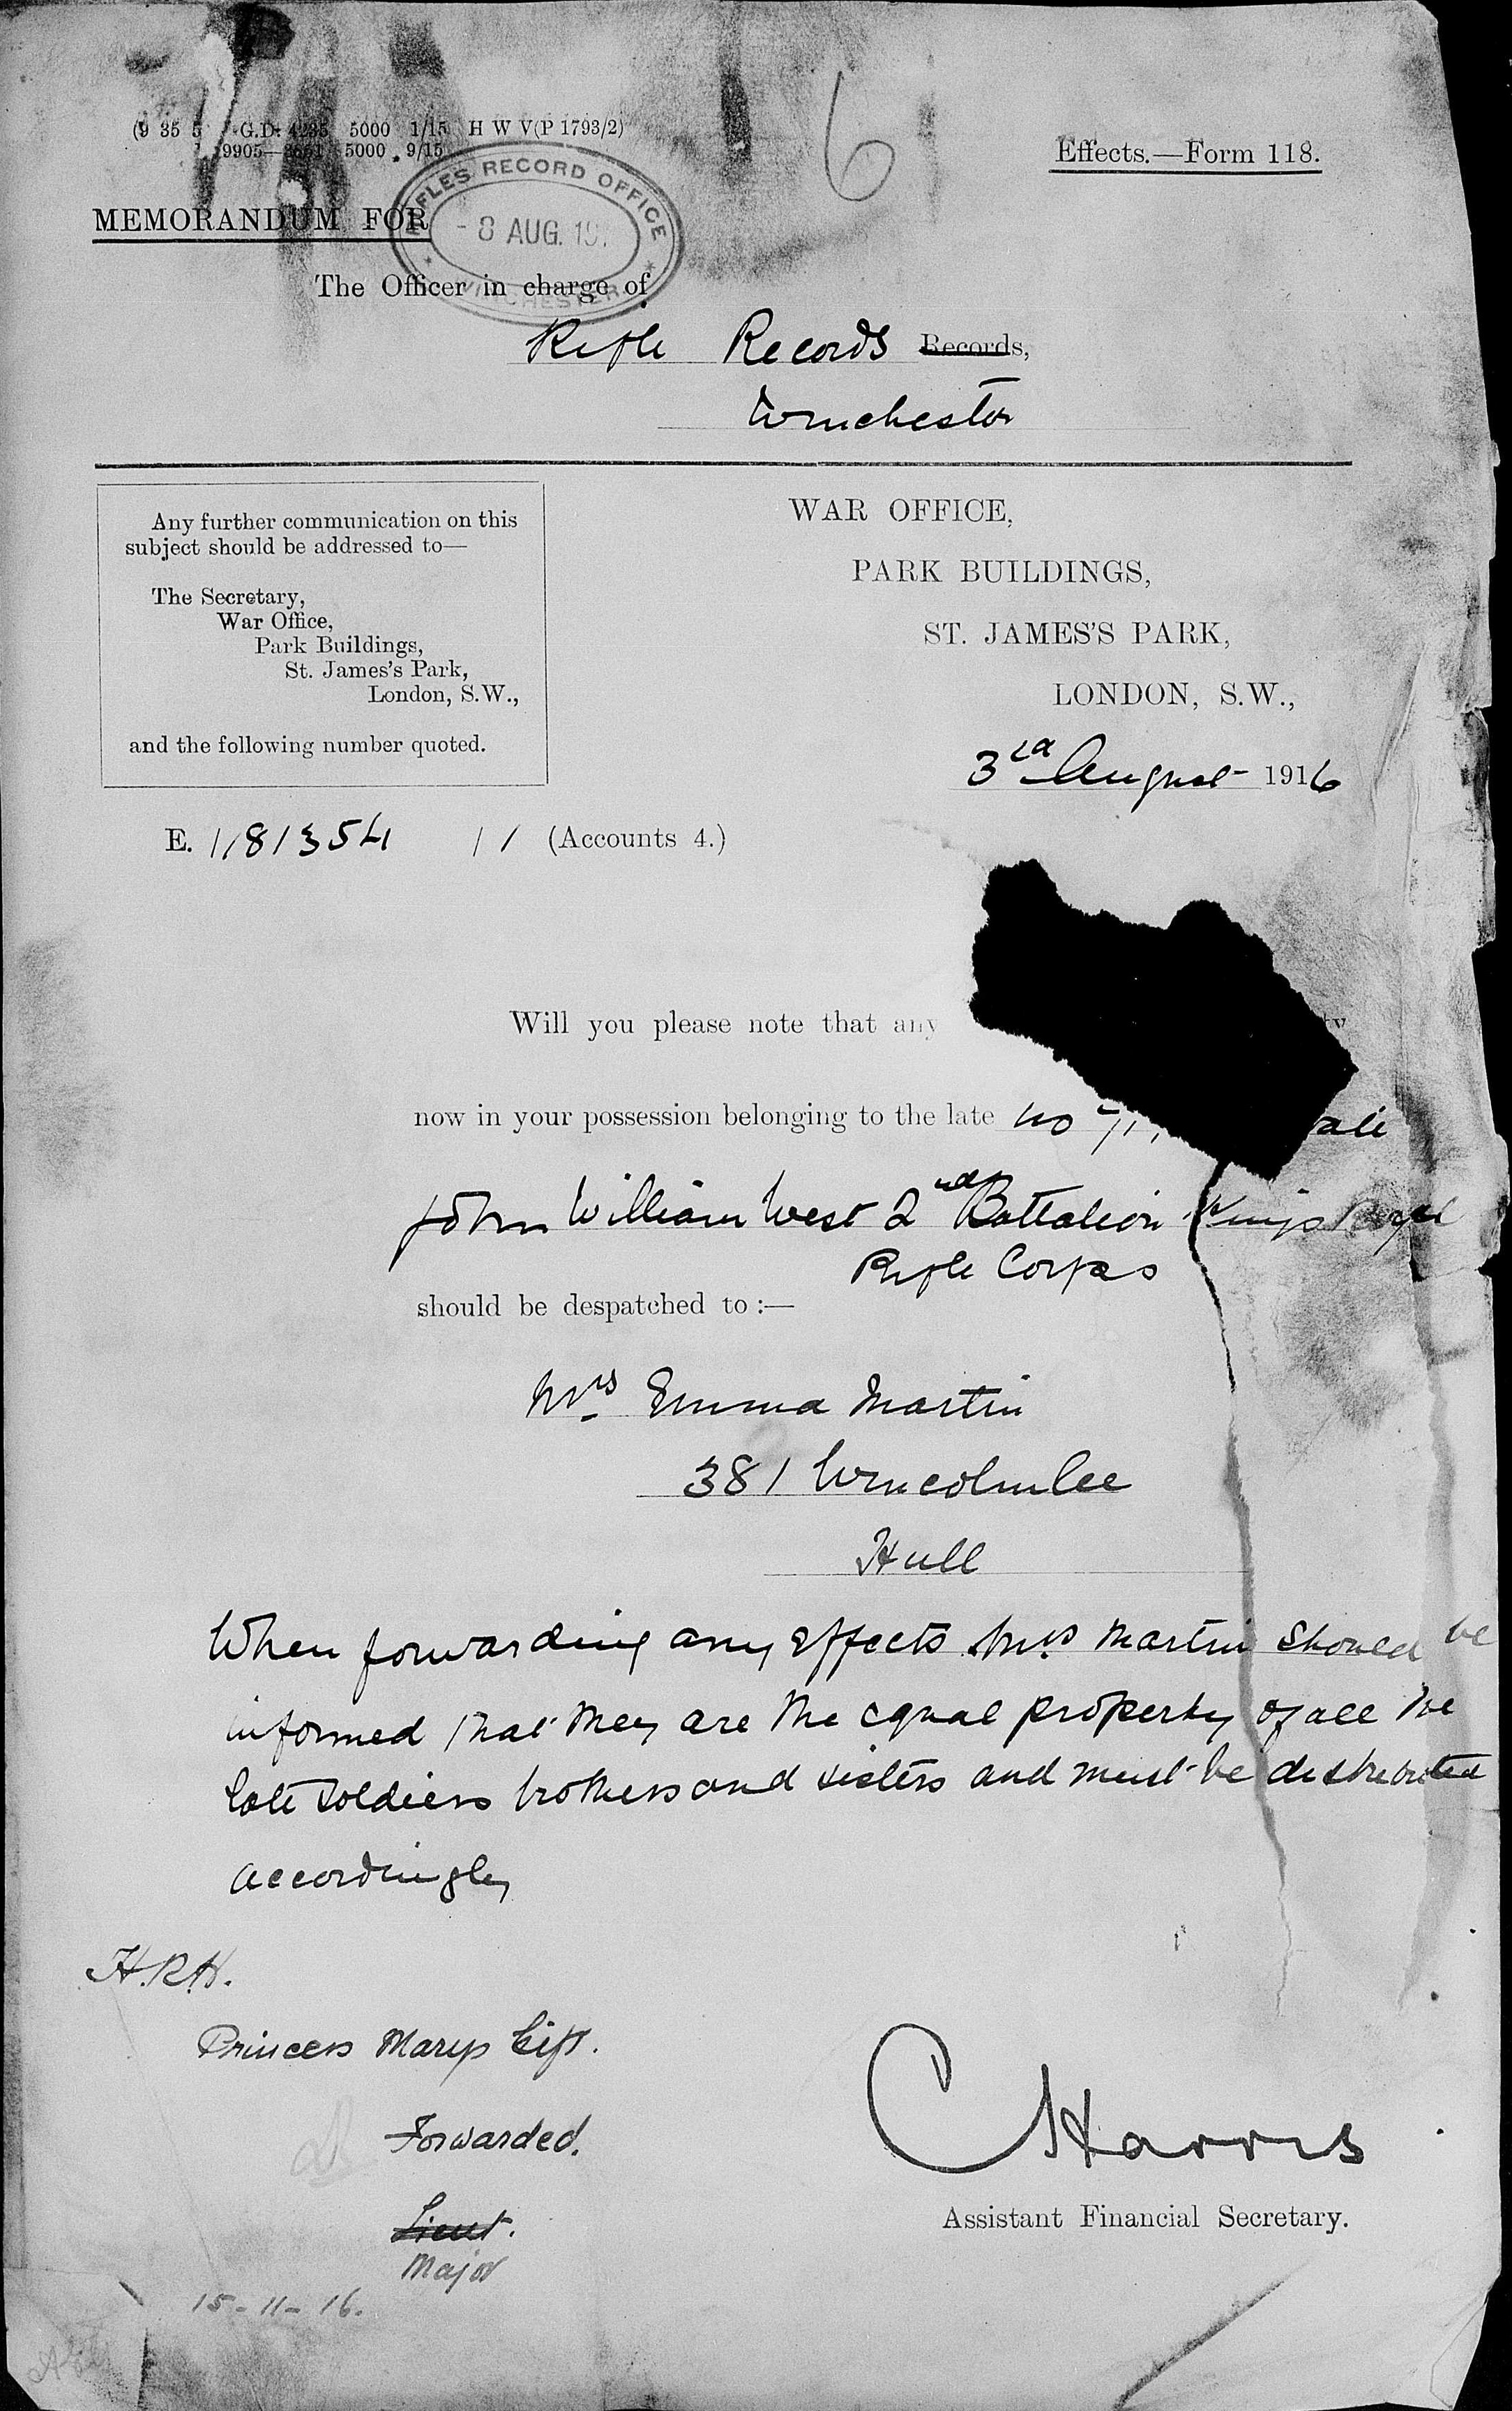 (9 35 5 G.D. 4235 5000 1/15 H W V(P 1793/2)
9905— 5000 9/15
Effects.—Form 118.
6
RIFLES RECORD OFFICE
- 8 AUG. 19
WINCHESTER
MEMORANDUM FOR
The Officer in charge of
Rifle Records Records,
Winchester
Any further communication on this
subject should be addressed to—
The Secretary,
War Office,
Park Buildings,
St. James's Park,
London, S.W.,
and the following number quoted.
WAR OFFICE,
PARK BUILDINGS,
ST. JAMES'S PARK,
LONDON, S.W.,
3rd August 1916
E. 1181354 1 / (Accounts 4.)
Will you please note that any
now in your possession belonging to the late No
John William West 2nd Battalion Kings Royal
Rifle Corps
should be despatched to :—
Mrs Emma Martin
381 Wincolmlee
Hull
When forwarding any effects Mrs Martin should be
informed that they are the equal property of all the
late soldiers brothers and sisters and must be distributed
accordingly
H.R.H.
Princess Marys Gift.
Forwarded.
Lieut.
Major
15-11-16.
C Harris
Assistant Financial Secretary.